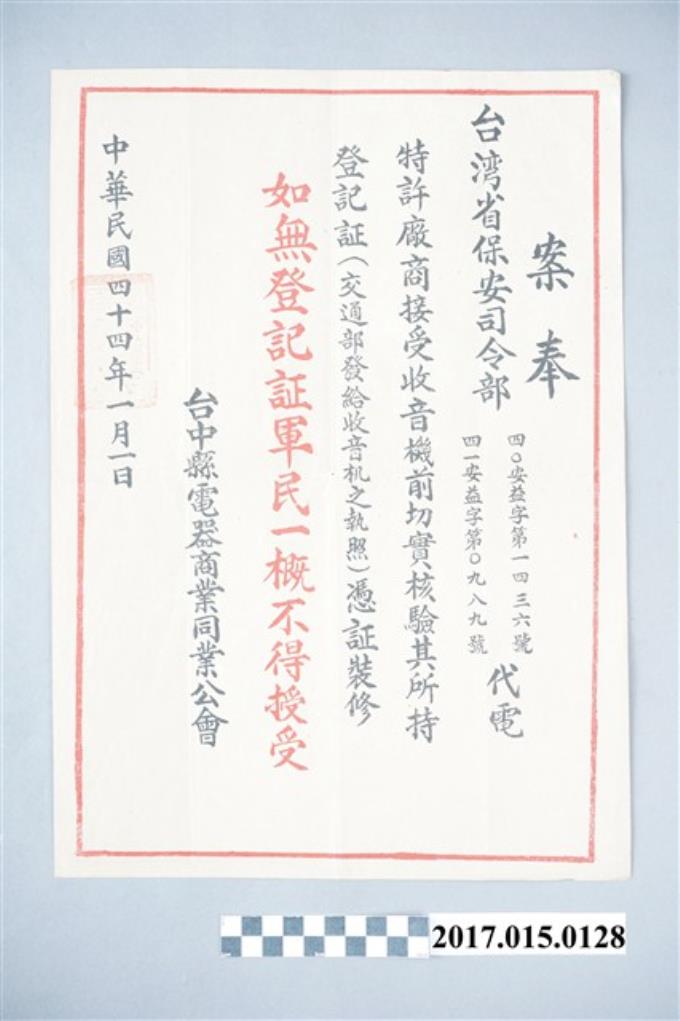 案奉
台湾省保安司令部
四〇安益字第一四三六號
四一安益字第〇九八九號
代電
特許廠商接受收音機前切實核驗其所持
登記証(交通部發給收音机之執照)憑証裝修
如無登記証軍民一概不得授受
台中縣電器商業同業公會
中華民國四十四年一月一日
2017.015.0128